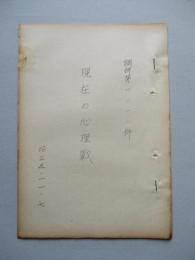 調研第　号
現在の心理戦
昭三五・一一・七